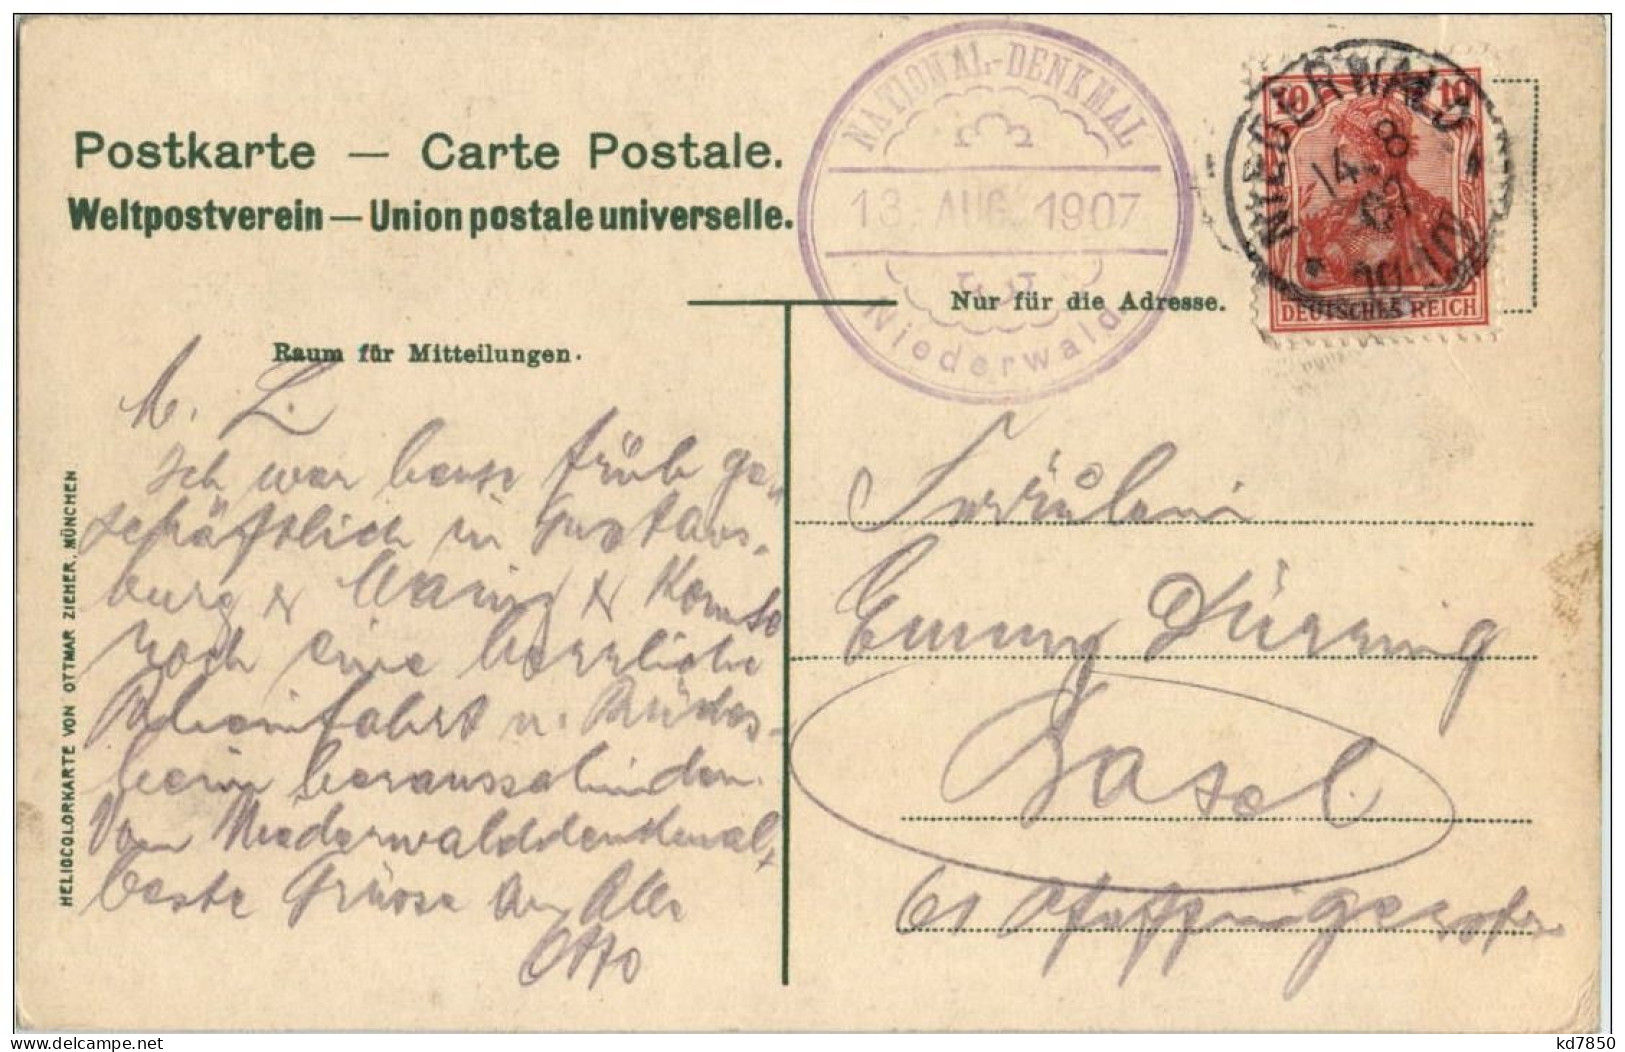 Postkarte — Carte Postale.
Weltpostverein — Union postale universelle.
NATIONAL-DENKMAL
13. AUG. 1907
Niederwald
NIEDERWALD
14. 8
07
10
10
DEUTSCHES REICH
Nur für die Adresse.
Raum für Mitteilungen.
HELIOCOLORKARTE VON OTTMAR ZIEHER, MÜNCHEN
M. L.
Ich war heute früh ge-
schäftlich in Gustavs-
burg & Mainz & konnte
noch eine herrliche
Rheinfahrt n. Rüdes-
heim herausschinden.
Vom Niederwalddenkmal
beste Grüsse an Alle
Otto
Fräulein
Emmy Dürring
Basel
61
kd7850